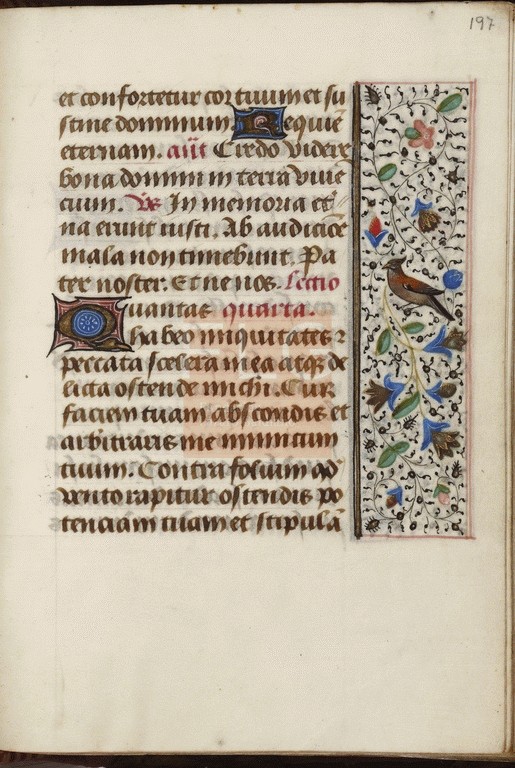 197
et confortetur cor tuum et su
stine dominum Requiē
eternam. añt Credo videre
bona domini in terra vive
cium. Vs In memoria et̄
na erunt iusti. Ab auditiōe
mala non timebunt. Pa
ter noster. Et ne nos. Lectio
Quantas quarta.
habeo iniquitates ⁊
peccata scelera mea atqꝫ de
licta ostende michi. Cur
faciem tuam abscondis et
arbitraris me inimicum
tuum. Contra folium qd̄
vento rapitur ostendis po
tenciam tuam et stipulā